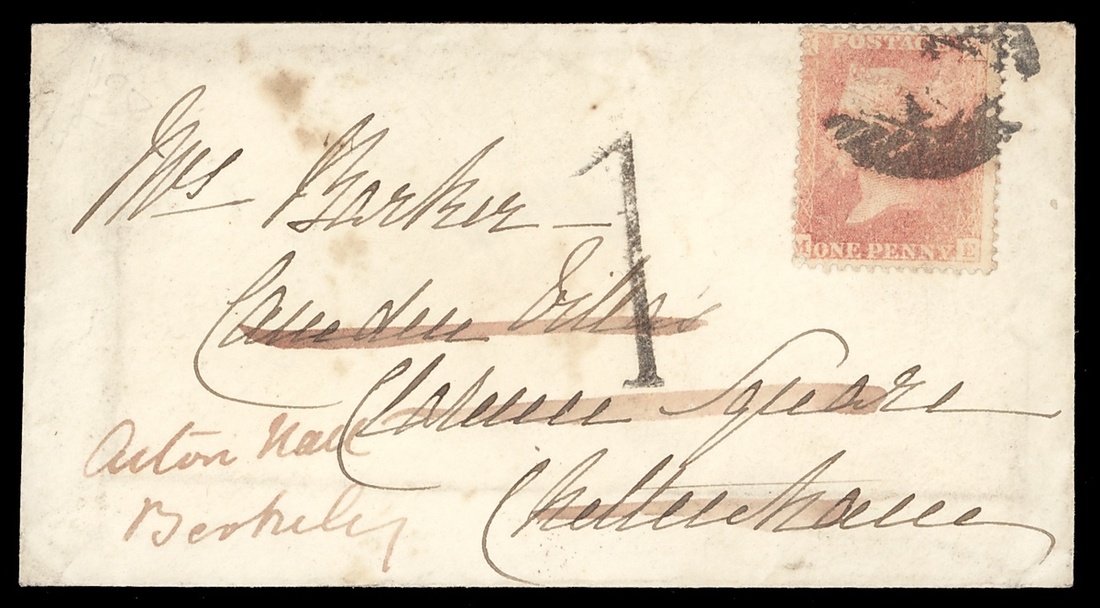 POSTAGE
Mrs Barker
1
Camden Villas
Clarence Square
Cheltenham
ONE PENNY
E
Acton Hall
Berkeley